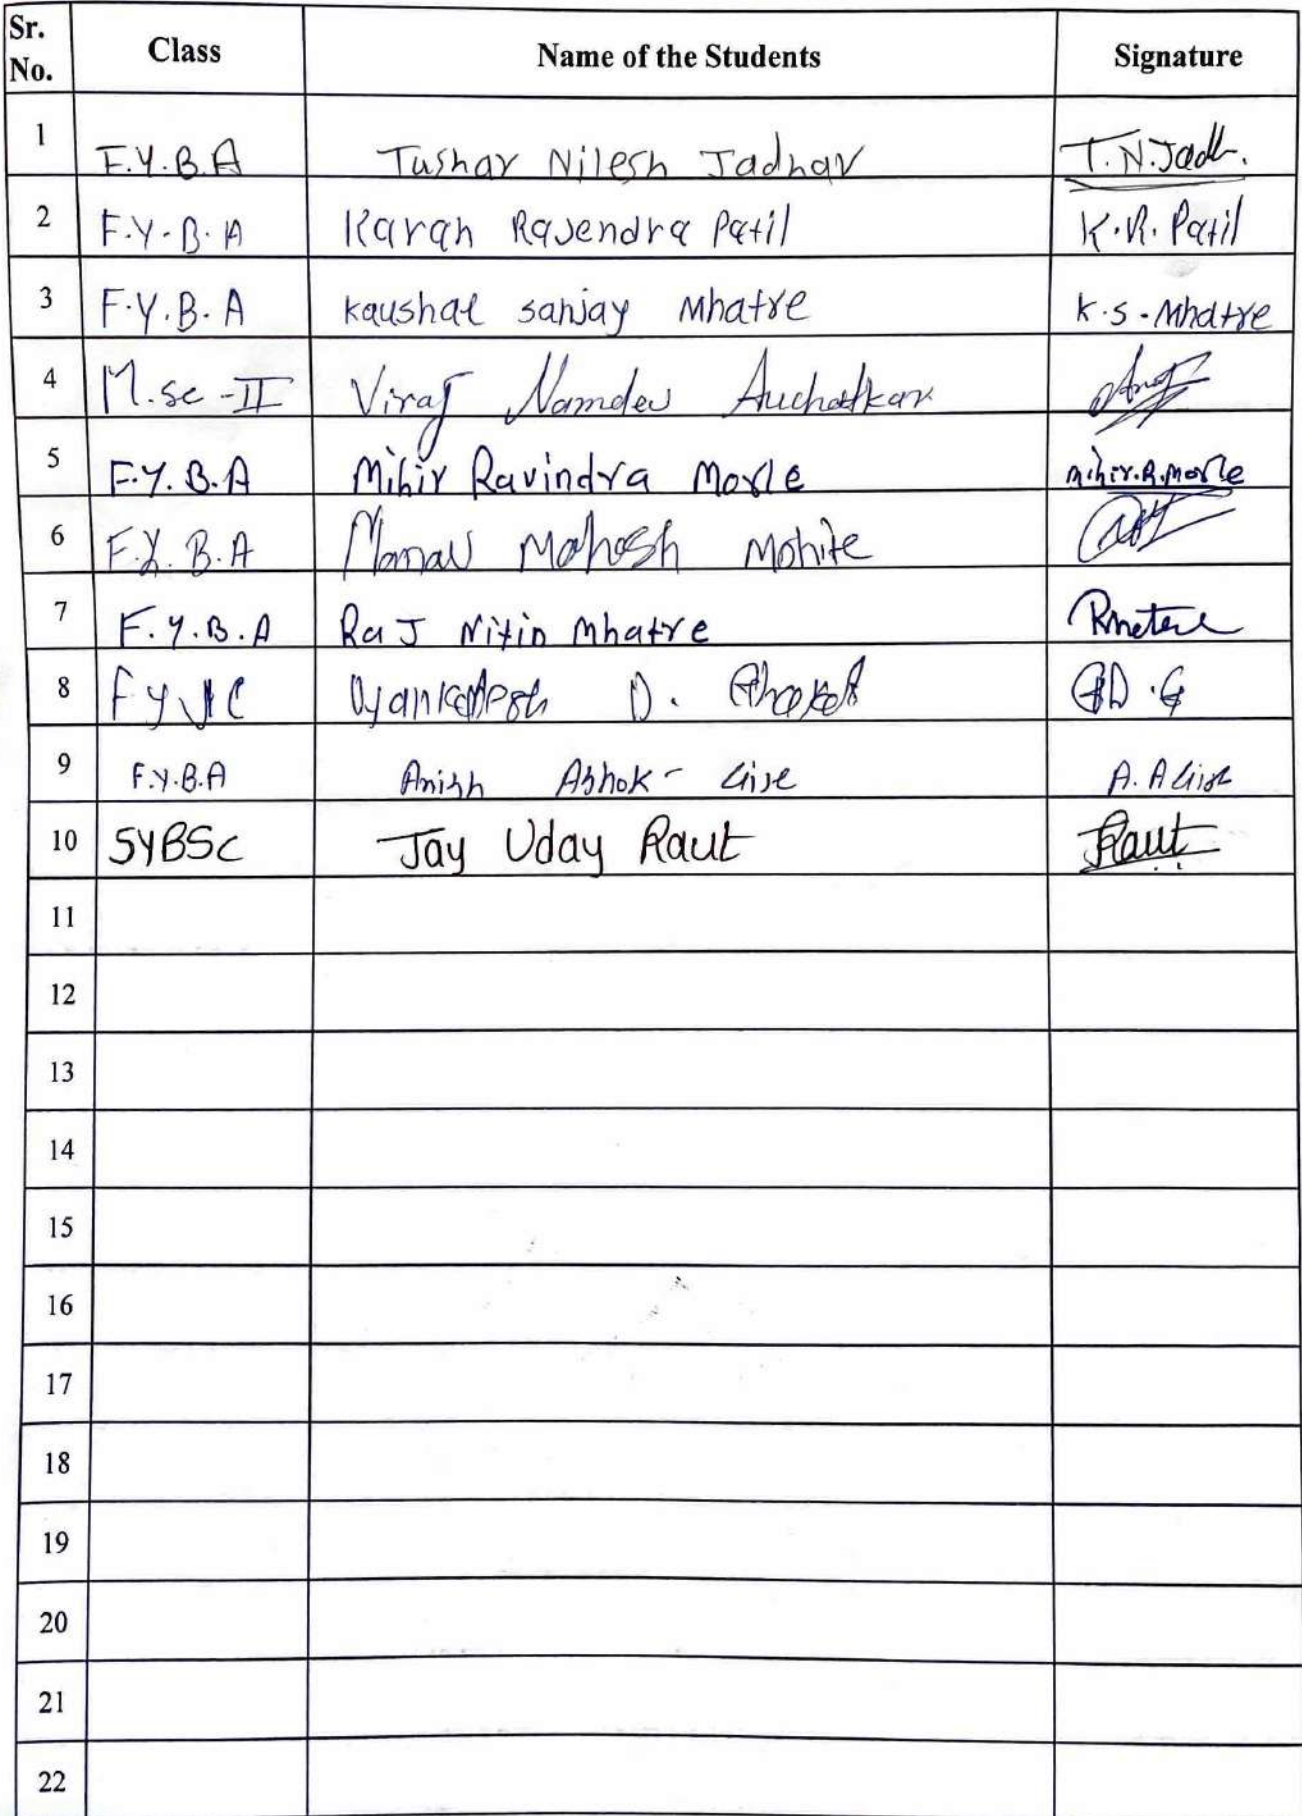 Sr. No. Class Name of the Students Signature
1 F.Y.B.A Tushar Nilesh Jadhav T.N.Jadh.
2 F.Y.B.A Karan Rajendra Patil K.R. Patil
3 F.Y.B.A kaushal sanjay Mhatre K.S. Mhatre
4 M.sc-II Viraj Namdev Auchatkar
5 F.Y.B.A Mihir Ravindra Morle Mihir.R.Morle
6 F.Y.B.A Manav Mahesh Mohite
7 F.Y.B.A Raj Nitin Mhatre
8 FYJC Vyankatesh D. GD.G
9 F.Y.B.A Anish Ashok - A.A
10 SYBSc Jay Uday Raut JRaut
11
12
13
14
15
16
17
18
19
20
21
22